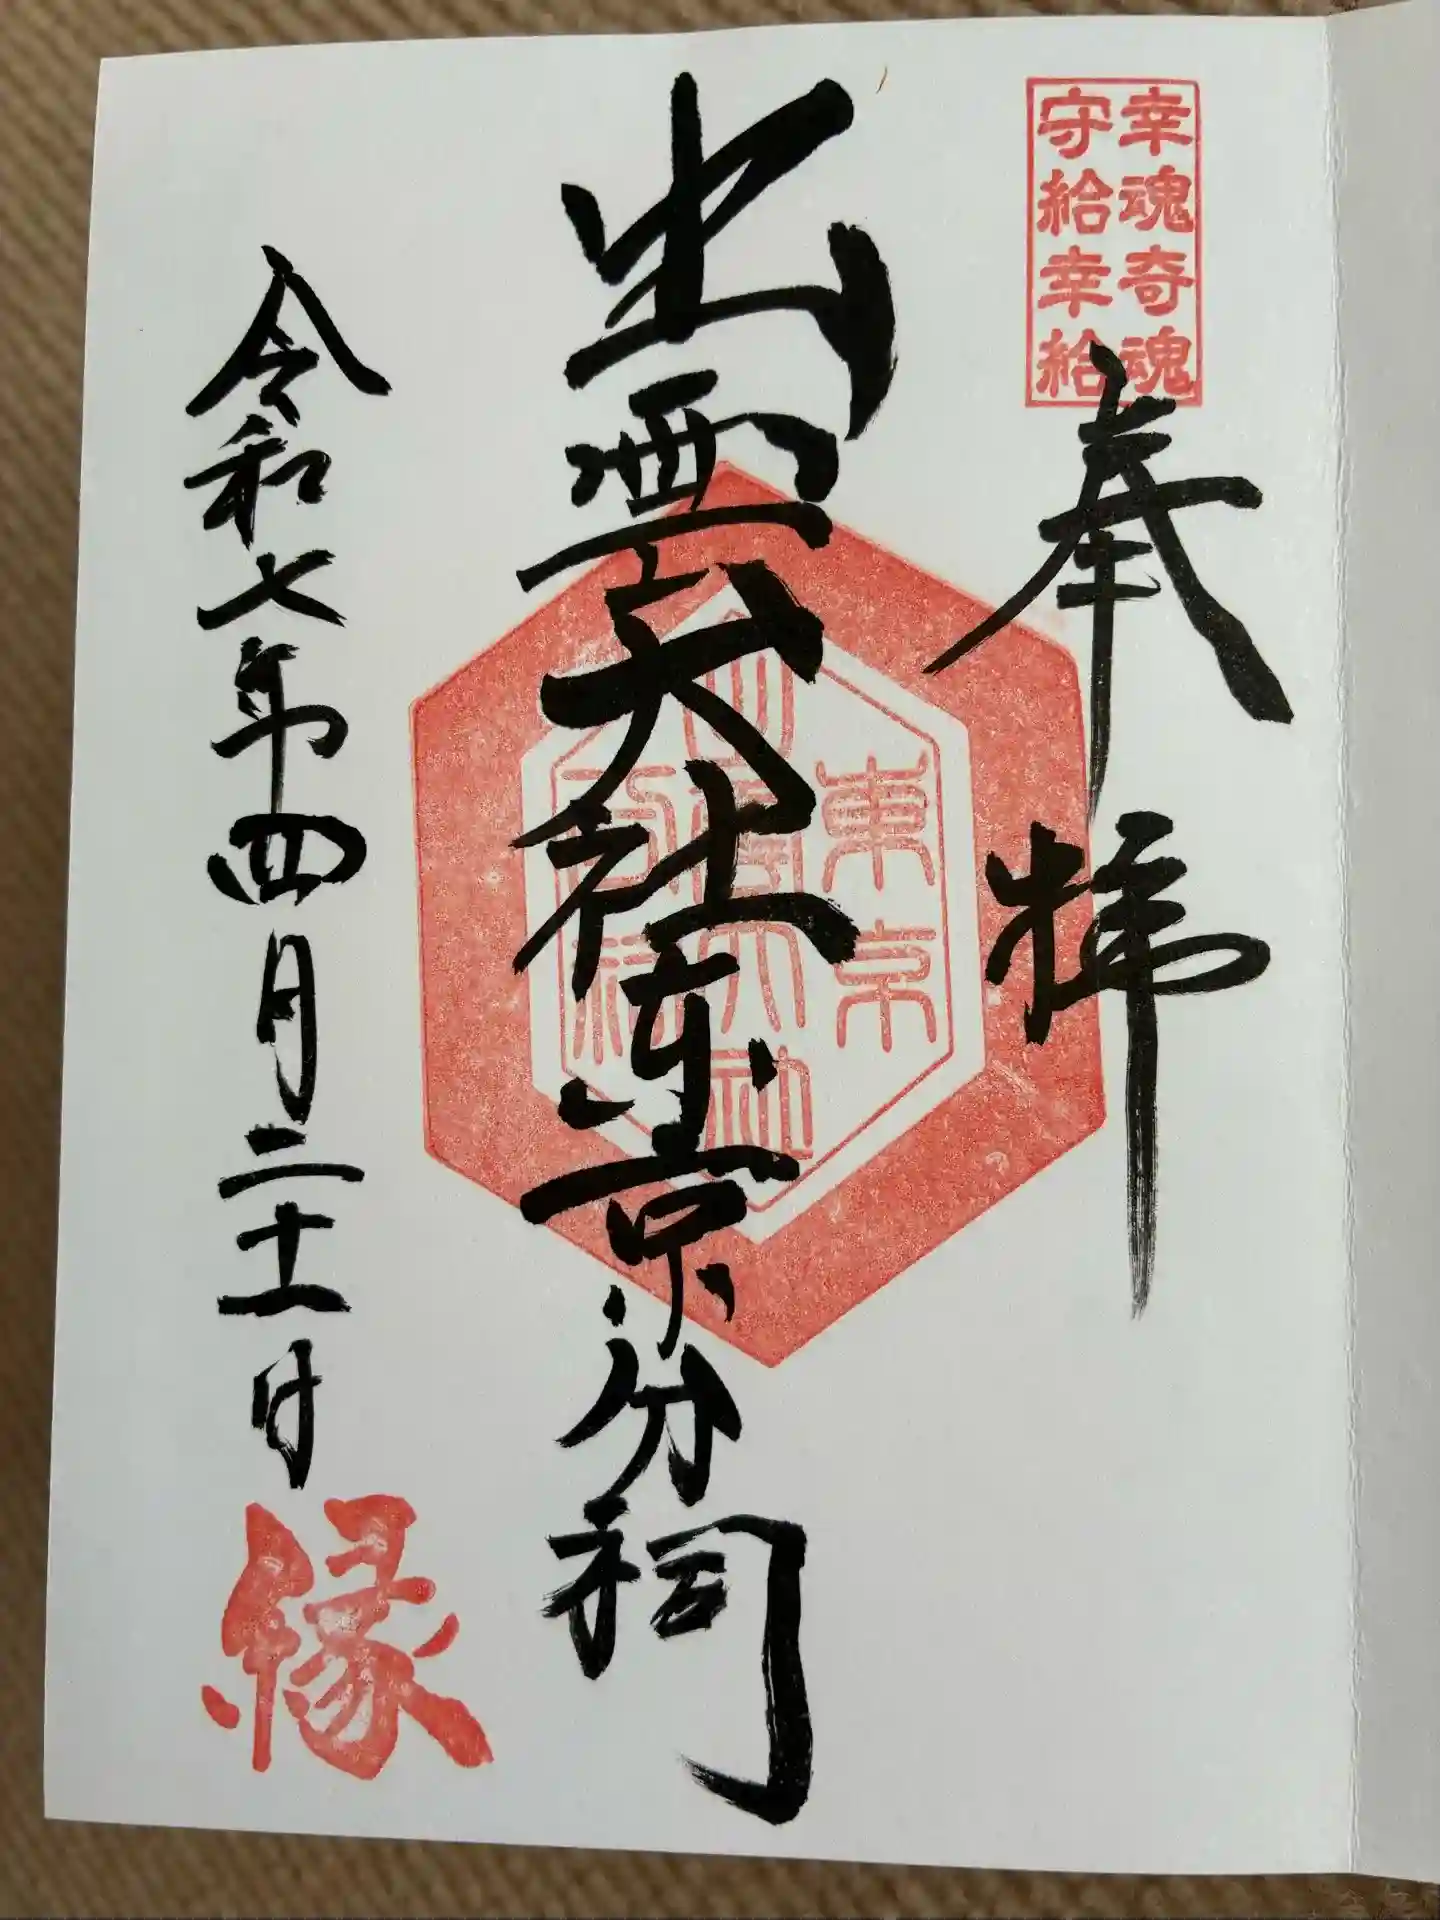 幸魂奇魂
守給幸給
奉拝
東京
出雲大社
分祠
出雲大社東京分祠
令和七年四月二十一日
縁